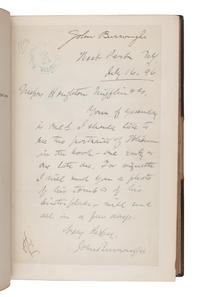 John Burroughs
West Park N.Y.
July 16. 96
Messrs Houghton Mifflin & Co,
Yours of yesterday
is recd. I should like to
see two portraits of Whitman
in the book - one early &
one late one. For vignette
I will send you a photo
of his tomb & of his
birth place - will send
all in a few days.
Very truly
John Burroughs